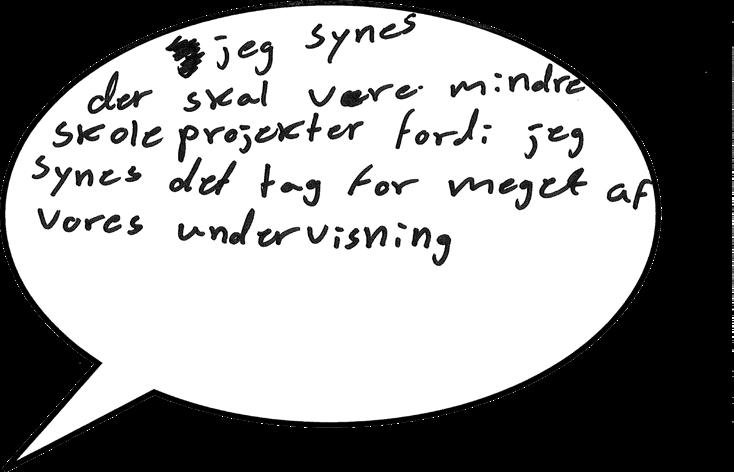 jeg synes
der skal være mindre
skole projekter fordi jeg
synes det tag for meget af
vores undervisning